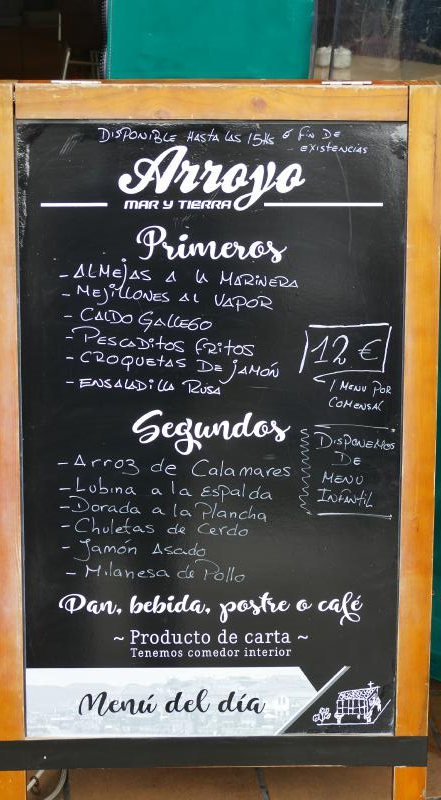 DISPONIBLE HASTA LAS 15Hs ó FIN DE
EXISTENCIAS
Arroyo
MAR Y TIERRA
Primeros
- ALMEJAS A LA MARINERA
- MEJILLONES AL VAPOR
- CALDO GALLEGO
- PESCADITOS FRITOS
- CROQUETAS DE JAMÓN
- ENSALADILLA RUSA
12 €
1 MENU POR
COMENSAL
Segundos
- Arroz de Calamares
- Lubina a la Espalda
- Dorada a la Plancha
- Chuletas de Cerdo
- Jamón Asado
- Milanesa de Pollo
DISPONEMOS
DE
MENU
INFANTIL
Pan, bebida, postre o café
~ Producto de carta ~
Tenemos comedor interior
Menú del día